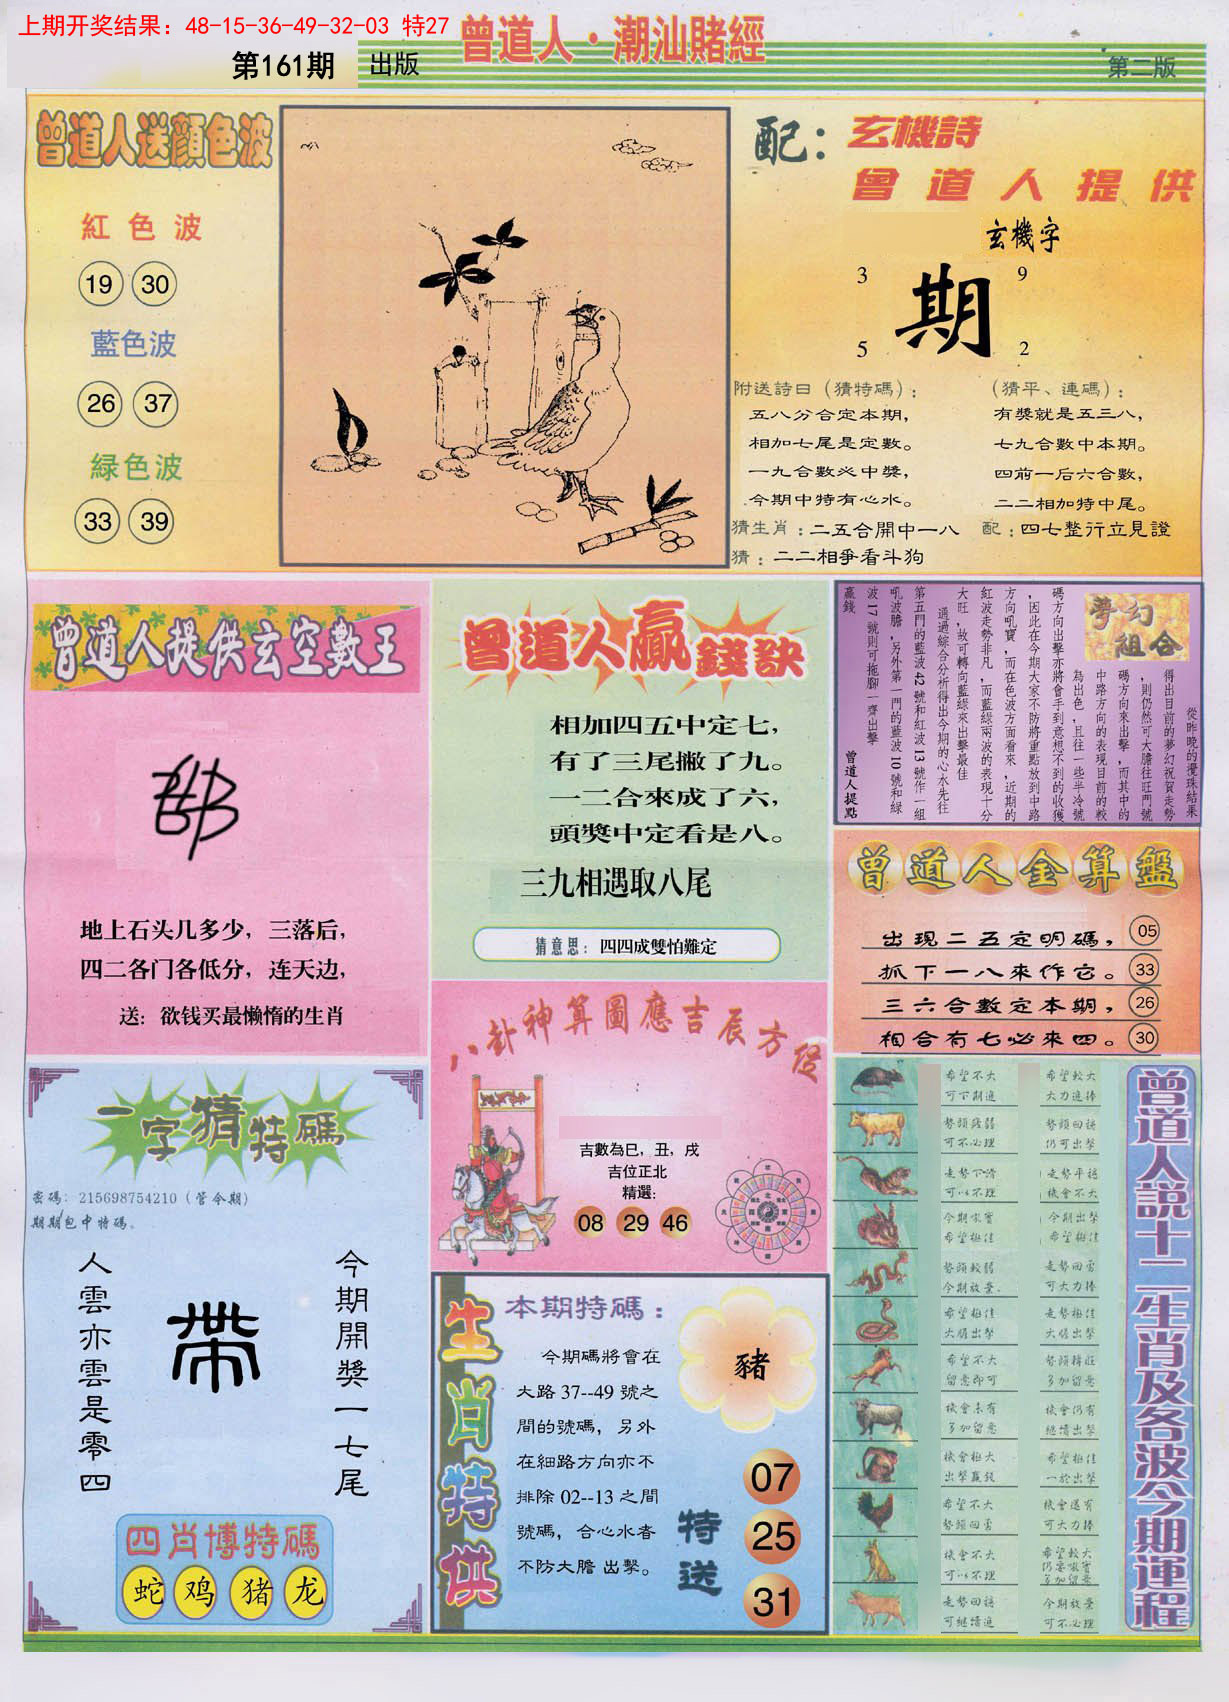 上期开奖结果：48-15-36-49-32-03 特27
第161期 出版
曾道人·潮汕賭經
第二版
曾道人送顏色波
紅色波
19 30
藍色波
26 37
緑色波
33 39
配：玄機詩
曾道人提供
玄機字
3 9
期
5 2
附送詩曰（猜特碼）：
五八分合定本期，
相加七尾是定數。
一九合數必中獎，
今期中特有心水。
（猜平、連碼）：
有獎就是五三八，
七九合數中本期。
四前一后六合數，
二二相加特中尾。
猜生肖：二五合開中一八
配：四七整行立見證
猜：二二相爭看斗狗
曾道人提供玄空數王
地上石头几多少，三落后，
四二各门各低分，连天边，
送：欲钱买最懒惰的生肖
曾道人贏錢訣
相加四五中定七，
有了三尾撇了九。
一二合來成了六，
頭獎中定看是八。
三九相遇取八尾
猜意思：四四成雙怕難定
夢幻組合
從昨晚的攪珠結果
得出目前的夢幻祝賀走勢
，則仍然可大膽往旺門號
碼方向來出擊，而其中的
中路方向的表現目前的較
為出色，且往一些半冷號
碼方向出擊亦將會手到意想不到的收獲
，因此在今期大家不防將重點放到中路
方向吼寶，而在色波方面看來，近期的
紅波走勢非凡，而藍綠兩波的表現十分
大旺，故可轉向藍綠來出擊最佳
通過綜合分析得出今期的心水先往
第五門的藍波42號和紅波13號作一組
吼波膽，另外第一門的藍波10號和綠
波17號則可拖腳一齊出擊
贏錢
曾道人提點
曾道人金算盤
出現二五定明碼， 05
抓下一八來作它。 33
三六合數定本期， 26
相合有七必來四。 30
八卦神算圖應吉辰方位
吉數為巳，丑，戌
吉位正北
精選：
08 29 46
一字猜特碼
密碼：215698754210（管令期）
期期包中特碼。
今期開獎一七尾
帶
人雲亦雲是零四
四肖博特碼
蛇 鸡 猪 龙
生肖特供
本期特碼：
今期碼將會在
大路37--49號之
間的號碼，另外
在細路方向亦不
排除02--13之間
號碼，合心水者
不防大膽出擊。
豬
特送
07
25
31
曾道人説十二生肖及各波今期運程
希望不大 希望較大
可下期進 大力進捧
勢頭疲弱 勢頭回穩
可不必理 仍可出擊
走勢下滑 走勢平穩
可以不理 機會不大
今期吼寶 今期出擊
希望極佳 希望極佳
勢頭較弱 走勢回勇
今期放棄. 可大力捧
希望極佳 走勢極佳
大膽出擊 大膽出擊
希望不大 勢頭轉旺
留意即可 多加留意
機會未有 機會仍有
多加留意 繼續出擊
機會極大 希望極佳
出擊贏錢 一於出擊
希望不大 機會還有
勢頭回勇 可大力捧
機會不大 希望較大
可以不理 仍要吼寶
多加留意
走勢回穩 今期放棄
可繼續進 可不必理